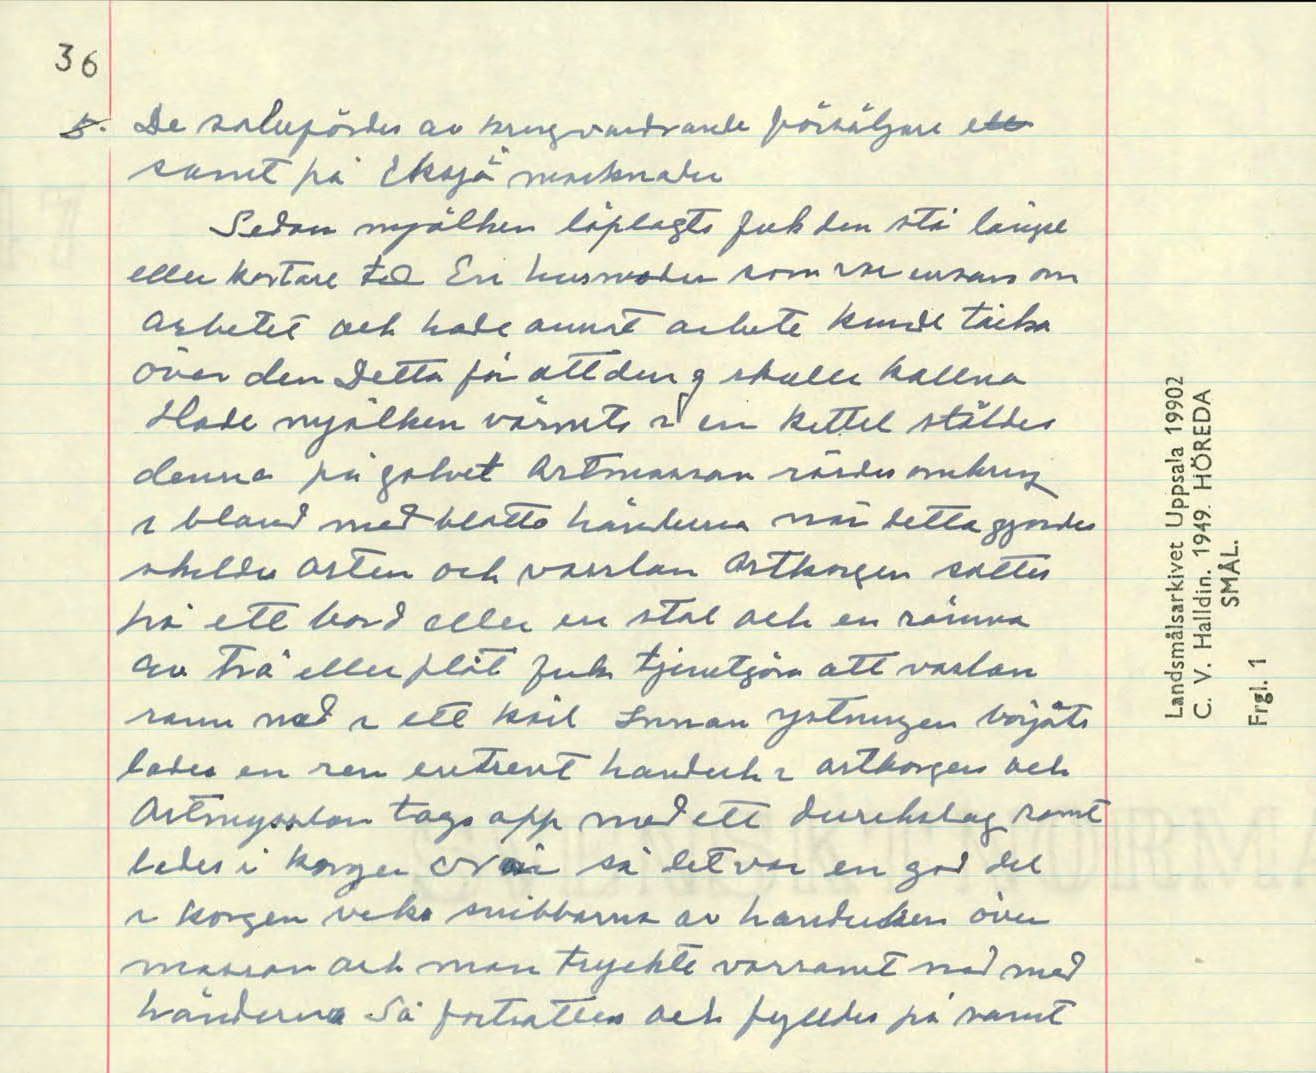 36
5. De salufördes av kringvandrande försäljare
samt på Eksjö marknader
Sedan mjölken löplagts fick den stå längre
eller kortare tid En husmoder som var ensam om
arbetet och hade annat arbete kunde täcka
över den Detta för att den ej skulle kallna
Hade mjölken värmts i en kettel ställdes
denna på golvet Ostmassan rördes omkring
i bland med blotta händerna när detta gjordes
skildes osten och vasslan Ostkorgen sattes
på ett bord eller en stol och en ränna
av trä eller plåt fick tjenstgöra att vaslan
rann ned i ett käril Innan ystningen börjats
lades en ren urtvent handuk i ostkorgen och
Ostmysslan togs opp med ett durchslag samt
lades i korgen När så det var en god del
i korgen veks snibbarna av handuken över
massan och man tryckte varsamt ned med
händerna Så fortsattes och fylldes på samt
Landsmålsarkivet Uppsala 19902
C. V. Halldin. 1949. HÖREDA
SMÅL.
Frgl. 1